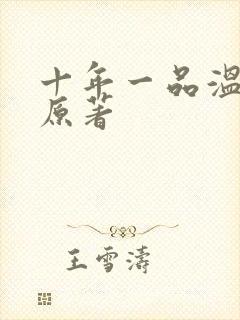 十年一品温
原著
王雪涛